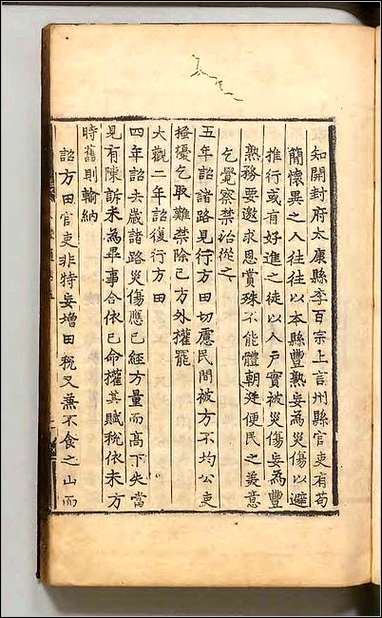 知開封府太康縣李百宗上言州縣官吏有苟
簡懷異之人往往以本縣豐熟妄為災傷以避
推行或有好進之徒以人戶實被災傷妄為豐
熟務要邀求恩賞殊不能體朝廷便民之美意
乞覺察禁治從之
五年詔諸路見行方田切慮民間被方不均公吏
搔擾乞取難禁除已方外權罷
大觀二年詔復行方田
四年詔去歲諸路災傷應已經方量而高下失當
見有陳訴未為畢事合依已命權其賦稅依未方
時舊則輸納
詔方田官吏非特妄增田稅又兼不食之山而